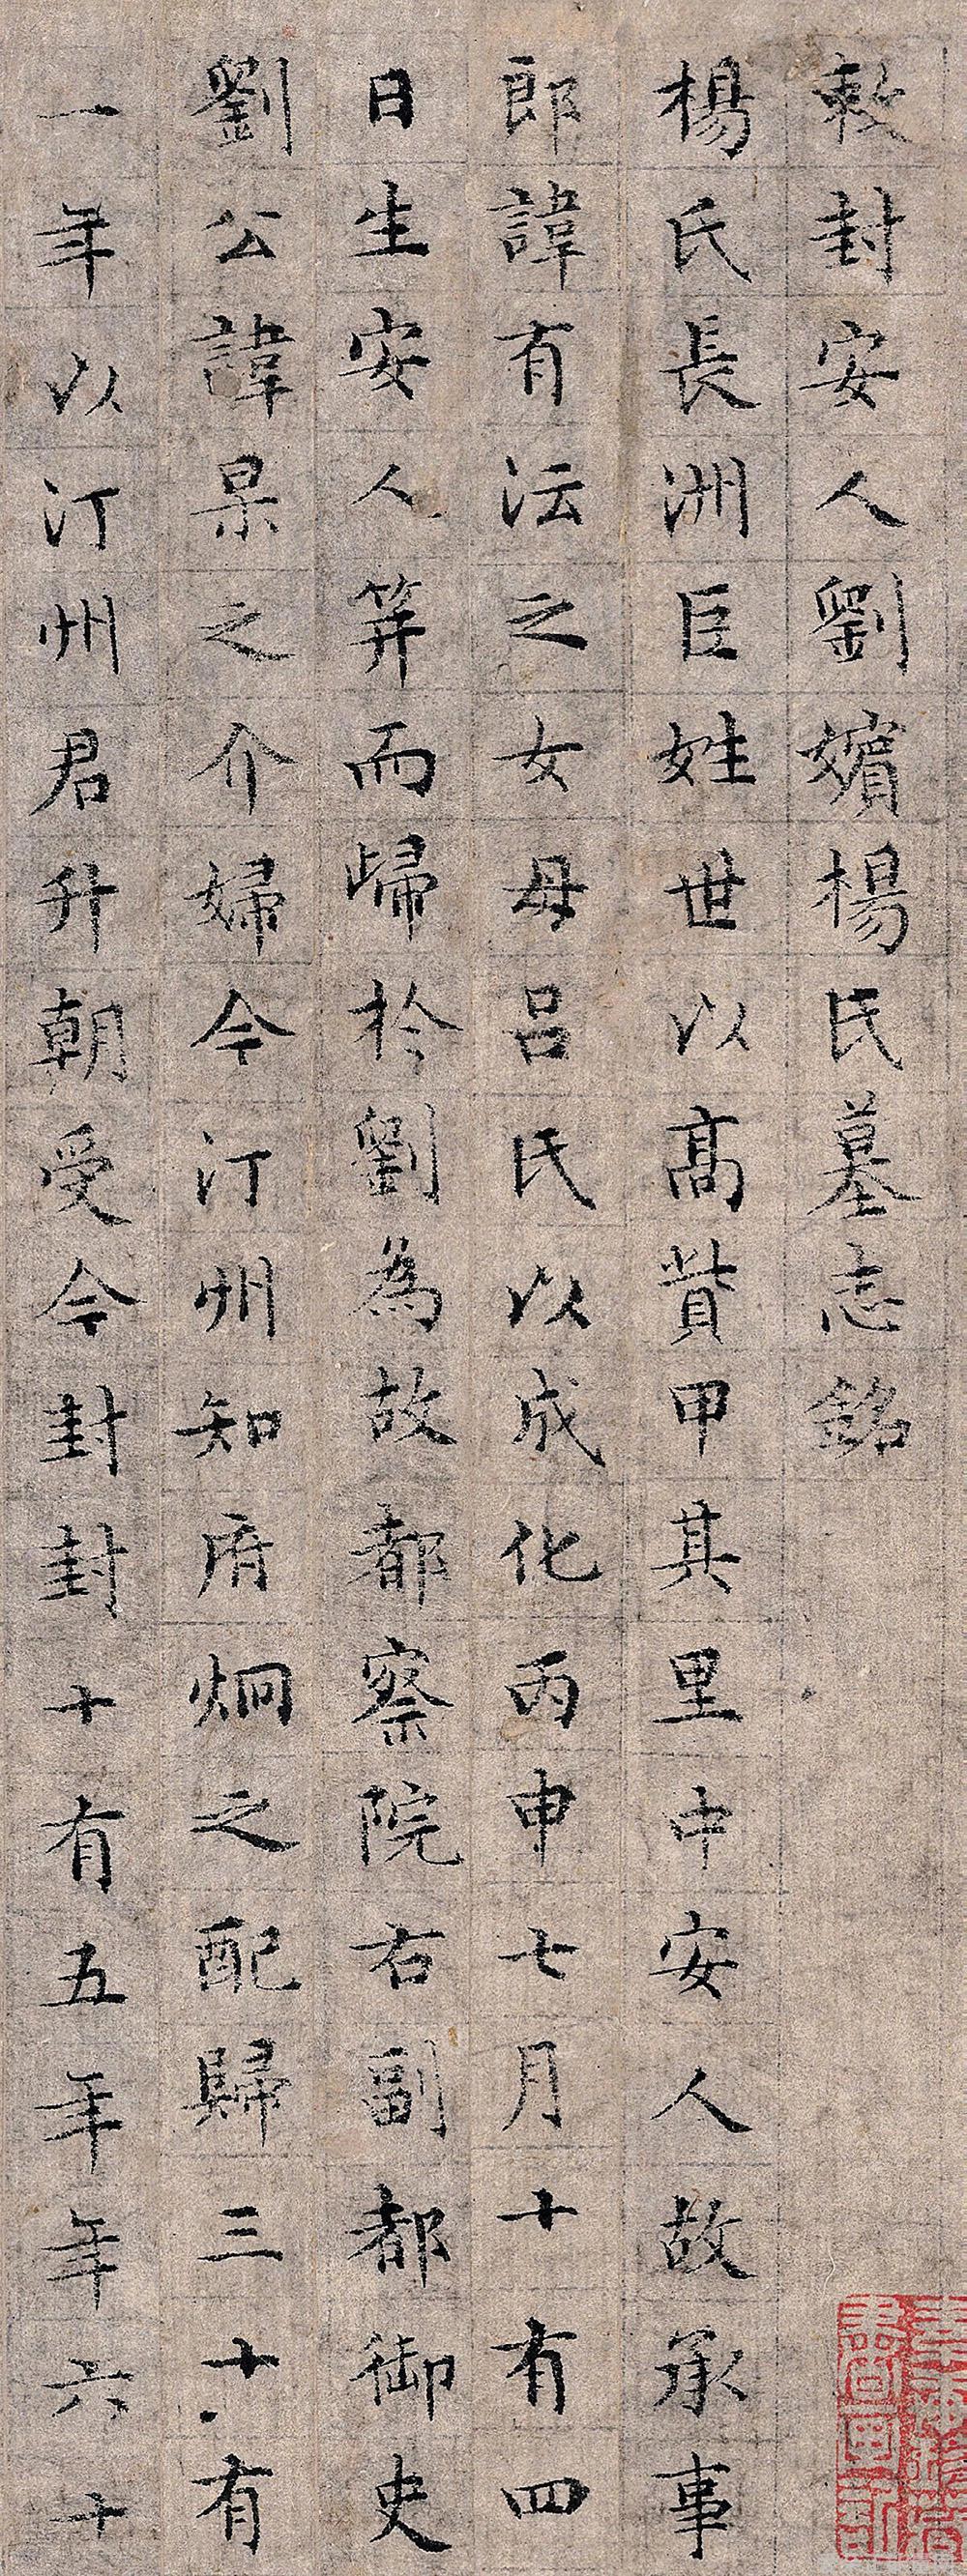 敕封安人劉嬪楊氏墓志銘
楊氏長洲巨姓世以高貲甲其里中安人故承事
郎諱有沄之女母呂氏以成化丙申七月十有四
日生安人笄而歸於劉為故都察院右副都御史
劉公諱杲之介婦今汀州知府炯之配歸三十有
一年以汀州君升朝受今封封十有五年年六十